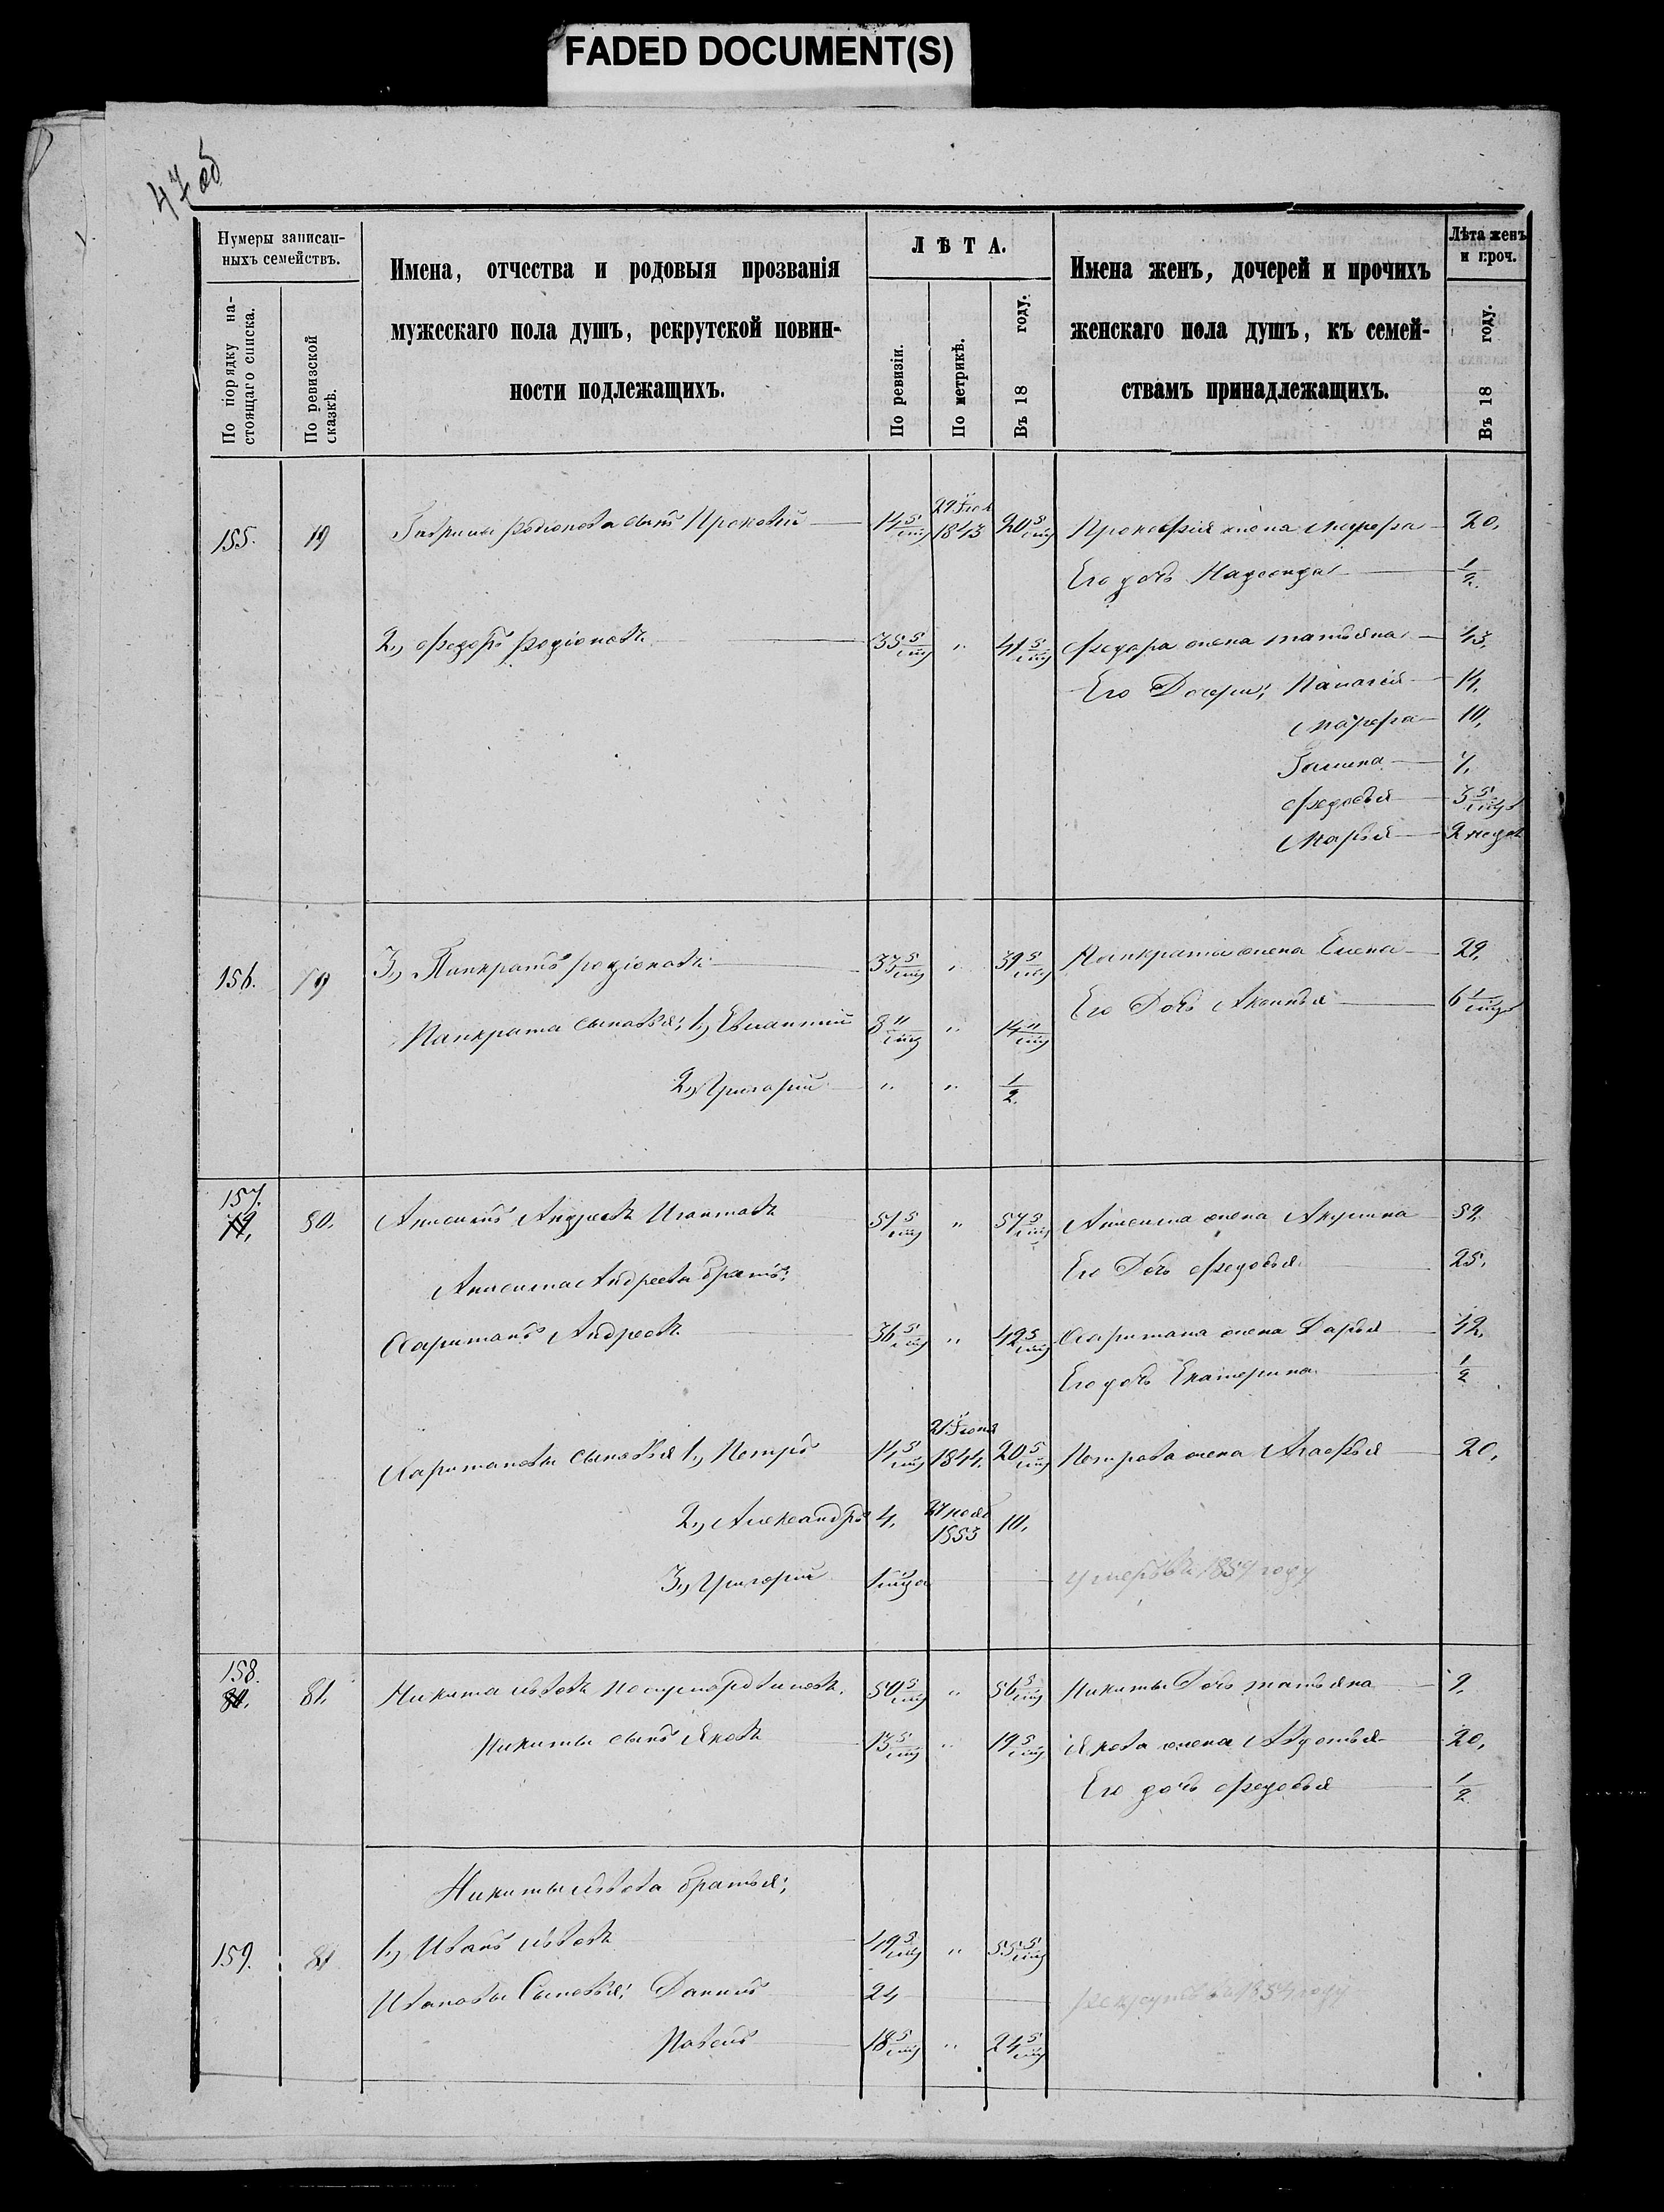 FADED DOCUMENT(S)
47об
Нумеры записан-
ныхъ семействъ.
По порядку на-
стоящаго списка.
По ревизской
сказкѣ.
Имена, отчества и родовыя прозванія
мужескаго пола душъ, рекрутской повин-
ности подлежащихъ.
ЛѢТА.
По ревизіи.
По метрикѣ.
Въ 18 году.
Имена женъ, дочерей и прочихъ
женскаго пола душъ, къ семей-
ствамъ принадлежащихъ.
Лѣта женъ
и проч.
Въ 18 году.
155. 79 Гаврилы Родіонова сынъ Прокофій 14 5/мц 1843 20 5/мц Прокофія жена 20,
Его дочь 1/2
2, Федоръ Родіоновъ 35 5/мц " 41 5/мц Федора жена Татьяна 43,
Его Дочери; Палагея 14,
10,
Галина 7,
Федосья 3 5/мц
Марья 2 недѣл
156. 79 3, Панкратъ Родіоновъ 33 5/мц " 39 5/мц Панкрата жена Елена 29,
Панкрата сыновья; 1, 8 11/мц " 14 11/мц Его Дочь 6 1/мц
2, Григорій " " 1/2
157. 79, 80. Анисимъ Андреевъ Игнатовъ 51 5/мц " 57 5/мц Анисима жена Акулина 59,
Анисима Андреева братъ; Его Дочь Федосья 25,
Харитонъ Андреевъ 36 5/мц " 42 5/мц Харитона жена Дарья 42,
Его дочь Екатерина 1/2
Харитоновы сыновья 1, Петръ 14 5/мц 21 Іюня 1844. 20 5/мц Петрова жена Агафья 20,
2, Александръ 4, 27 нояб 1853 10,
3, Григорій 1 мца умеръ въ 1857 году
158. 80. 81. Никита 50 5/мц " 56 5/мц Никиты Дочь Татьяна 9,
Никиты сынъ Яковъ 13 5/мц " 19 5/мц Якова жена Авдотья 20,
Его дочь Федосья 1/2
Никиты братья;
159. 81 1, Иванъ 49 5/мц " 55 5/мц
Ивановы Сыновья; Данилъ 24
18 5/мц " 24 5/мц